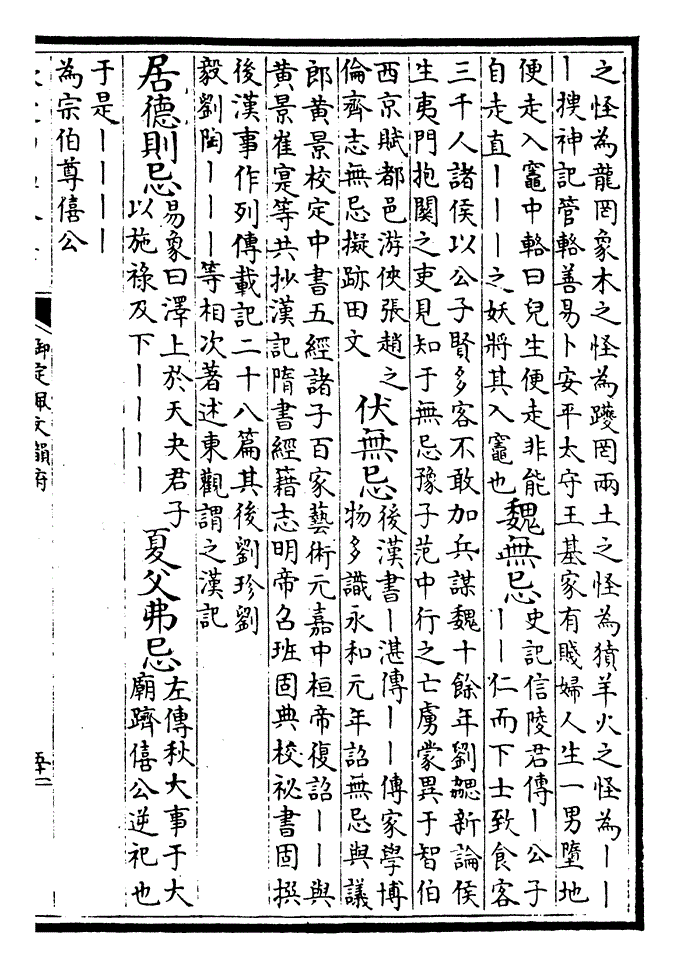 之怪為龍罔象木之怪為躨罔兩土之怪為獖羊火之怪為丨丨
丨搜神記管輅善易卜安平太守王基家有賤婦人生一男墮地
便走入竈中輅曰兒生便走非能
自走直丨丨丨之妖將其入竈也
魏無忌
史記信陵君傳丨公子
丨丨仁而下士致食客
三千人諸侯以公子賢多客不敢加兵謀魏十餘年劉勰新論侯
生夷門抱關之吏見知于無忌豫子范中行之亡虜蒙異于智伯
西京賦都邑游俠張趙之
倫齊志無忌擬跡田文
伏無忌
後漢書丨湛傳丨丨傳家學博
物多識永和元年詔無忌與議
郎黄景校定中書五經諸子百家藝術元嘉中桓帝復詔丨丨與
黄景崔寔等共抄漢記隋書經籍志明帝召班固典校祕書固撰
後漢事作列傳載記二十八篇其後劉珍劉
毅劉陶丨丨丨等相次著述東觀謂之漢記
居德則忌
易象曰澤上於天夬君子
以施祿及下丨丨丨丨
夏父弗忌
左傳秋大事于大
廟躋僖公逆祀也
于是丨丨丨丨
為宗伯尊僖公
御定佩文韻府